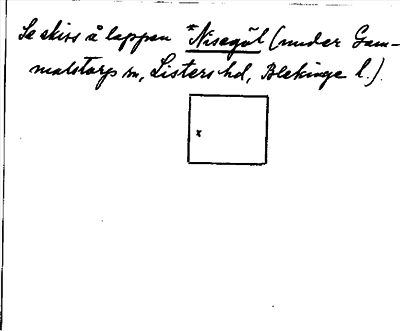 Se skiss å lappen *Nisegöl (under Gam-
malstorp sn, Listers hd, Blekinge l.).
x